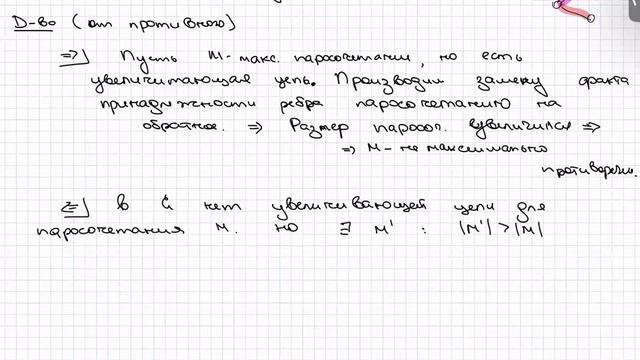 D-во (от противного)
⇒] Пусть M - макс. паросочетании, но есть
увеличитающая цепь. Производим замену факта
принадлежности ребра паросочетанию на
обратное. ⇒ Размер паросоч. увеличился ⇒
⇒ M - не максимально
противоречие.
⇐] В G нет увеличивающей цепи для
паросочетания M. но ∃ M' : |M'| > |M|